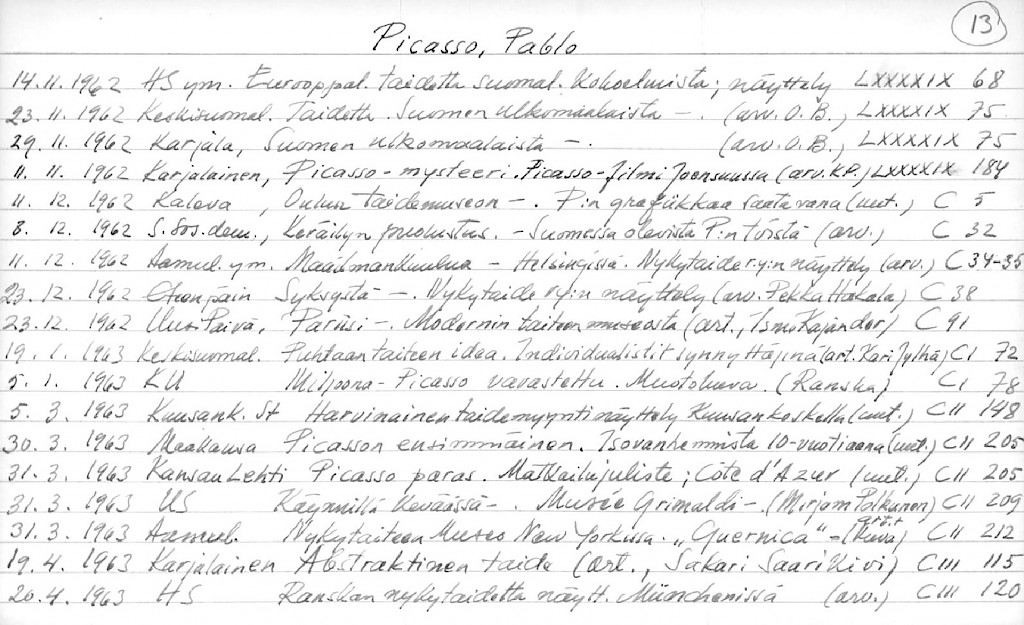 13
Picasso, Pablo
14.11.1962 HS ym. Eurooppal. taidetta suomal. kokoelmista; näyttely LXXXXIX 68
23.11.1962 Keskisuomal. Taidetta Suomen ulkomaalaista -. (arv. O.B., LXXXXIX 75
29.11.1962 Karjala, Suomen ulkomaalaista -. (arv. O.B., LXXXXIX 75
11.11.1962 Karjalainen, Picasso-mysteeri. Picasso-filmi Joensuussa (arv. K.P.) LXXXXIX 184
11.12.1962 Kaleva, Oulun taidemuseon -. P:n grafiikkaa saatavana (uut.) C 5
8.12.1962 S. Sos.dem., Keräilyn puolustus. - Suomessa olevista P:n töistä (arv.) C 32
11.12.1962 Aamul. ym. Maailmankuulua - Helsingissä. Nykytaide ry:n näyttely (arv.) C 34-35
23.12.1962 Syksystä -. Nykytaide ry:n näyttely (arv. Pekka Hakala) C 38
23.12.1962 Uusi Päivä, Pariisi -. Modernin taiteen museosta (art., Ismo Kajander) C 91
19.1.1963 Keskisuomal. Puhtaan taiteen idea. Individualistit synnyttäjinä (art. Kari Jylhä) CI 72
5.1.1963 KU Miljoona-Picasso varastettu. Muotokuva. (Ranska) CI 78
5.3.1963 Kuusank. St Harvinainen taidemyyntinäyttely Kuusankoskella (uut.) CII 148
30.3.1963 Maakansa Picasson ensimmäinen. Isovanhemmista 10-vuotiaana (uut.) CII 205
31.3.1963 Kansan Lehti Picasso paras. Matkailujuliste; Côte d'Azur (uut.) CII 205
31.3.1963 US Käynnillä keväässä -. Musée Grimaldi - (Mirjam Polkunen) CII 209
31.3.1963 Aamul. Nykytaiteen Museo New Yorkissa. "Guernica" - (kuva) art. CII 212
19.4.1963 Karjalainen Abstraktinen taide (art., Sakari Saarikivi) CIII 115
20.4.1963 HS Ranskan nykytaidetta näytt. Münchenissä (arv.) CIII 120